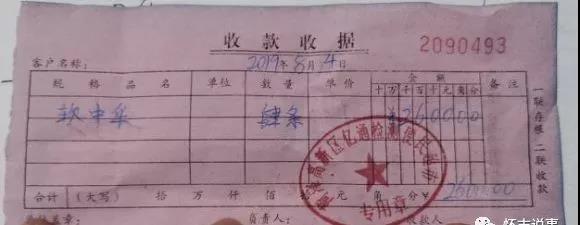 收款收据 2090493
客户名称: 2019年8月14日
规格品名 单位 数量 单价 金额 备注
十万千百十元角分
软中华 肆条 ¥260000
高新区亿通检测便民服务
专用章
合计 (大写) 拾 万 仟 佰 拾 元 角 分 ¥2600.00
负责人: 收款人
一联存根 二联收款
怀古说事